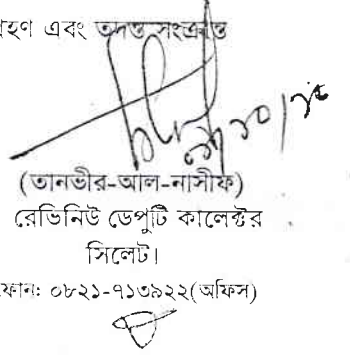 হণ এবং তদন্ত সংক্রান্ত
(তানভীর-আল-নাসীফ)
রেভিনিউ ডেপুটি কালেক্টর
সিলেট।
ফোন: ০৮২১-৭১৩৯২২(অফিস)